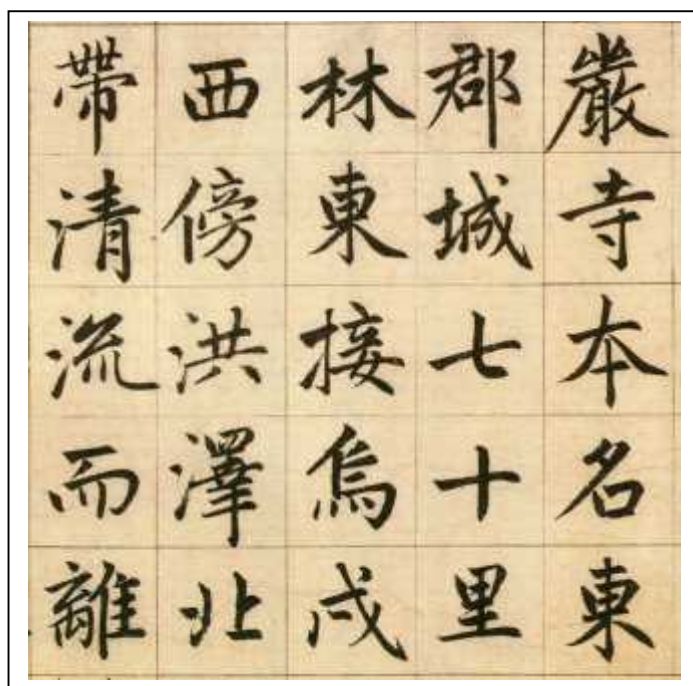 嚴寺本名東
郡城七十里
林東接烏戍
西傍洪澤北
帶清流而離